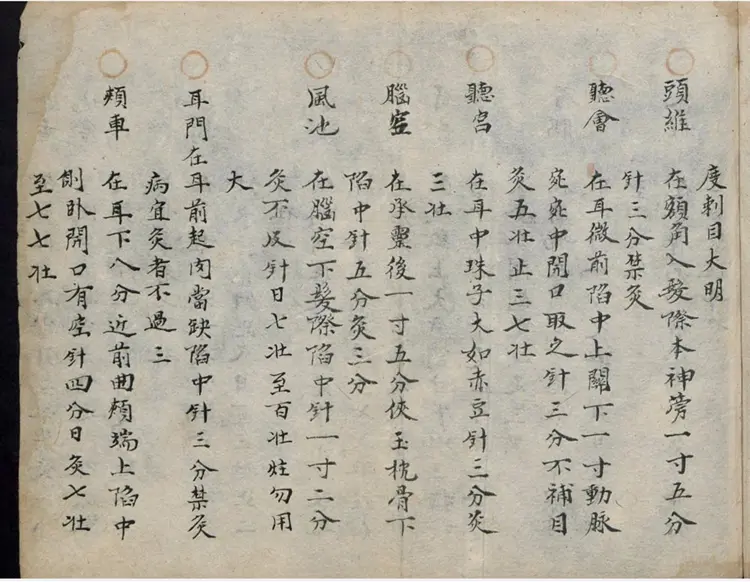 度刺目大明
頭維 在額角入髮際本神旁一寸五分
針三分禁灸
聽會 在耳微前陷中上關下一寸動脉
宛宛中開口取之針三分不補日
灸五壮止三七壮
聽宮 在耳中珠子大如赤豆針三分灸
三壮
腦空 在承灵後一寸五分俠玉枕骨下
陷中針五分灸三分
風池 在腦空下髮際陷中針一寸二分
灸不及針日七壮至百壮炷勿用
大
耳門在耳前起肉當缺陷中針三分禁灸
病宜灸者不過三
頰車 在耳下八分近前曲頰端上陷中
側卧開口有空針四分日灸七壮
至七七壮